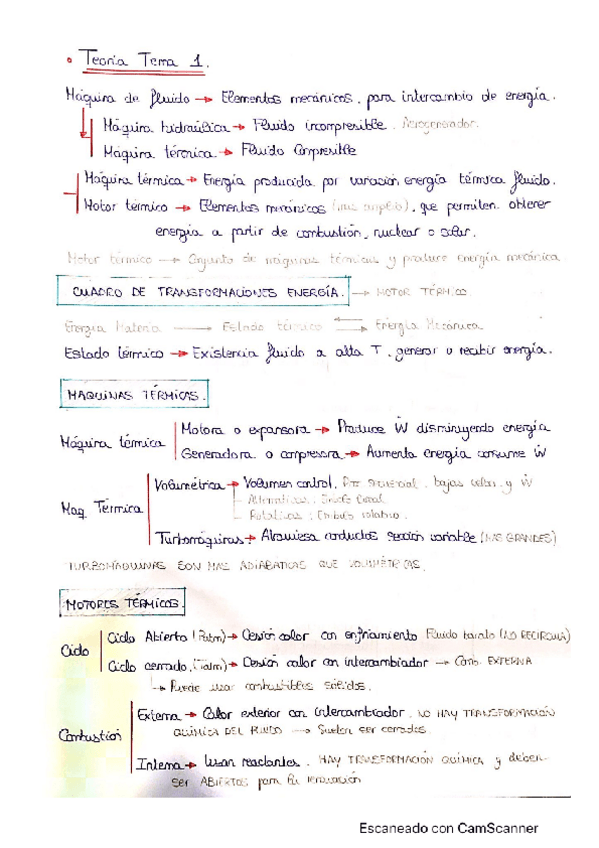 • Teoría Tema 1.
Máquina de fluido → Elementos mecánicos, para intercambio de energía.
Máquina hidráulica → Fluido incompresible. Aerogenerador.
Máquina térmica → Fluido Compresible
Máquina térmica → Energía producida por variación energía térmica fluido.
Motor térmico → Elementos mecánicos (mas amplio), que permiten obtener
energía a partir de combustión, nuclear o solar.
Motor térmico → Conjunto de máquinas térmicas y produce energía mecánica
CUADRO DE TRANSFORMACIONES ENERGÍA. → MOTOR TÉRMICO
Energía Materia → Estado térmico ⇄ Energía Mecánica
Estado térmico → Existencia fluido a alta T, generar o recibir energía.
MAQUINAS TÉRMICAS.
Máquina térmica
Motora o expansora → Produce Ẇ disminuyendo energía
Generadora o compresora → Aumenta energía consume Ẇ
Maq. Térmica
Volumétrica → Volumen control, bajas veloc. y Ẇ
Alternativas:
Rotativas: rotativo.
Turbomáquinas → Atraviesa conductos sección variable (MAS GRANDES)
TURBOMAQUINAS SON MAS ADIABÁTICAS QUE VOLUMÉTRICAS.
MOTORES TÉRMICOS.
Ciclo
Ciclo Abierto (Patm) → Cesión calor con enfriamiento Fluido barato (NO RECIRCULA)
Ciclo cerrado → Cesión calor con intercambiador → Comb. EXTERNA
↳ Puede usar combustibles sólidos.
Combustión
Externa → Calor exterior con intercambiador. NO HAY TRANSFORMACIÓN
QUÍMICA DEL FLUIDO → Suelen ser cerrados.
Interna → Usan reactantes. HAY TRANSFORMACIÓN QUÍMICA y deben
ser ABIERTOS para la renovación
Escaneado con CamScanner